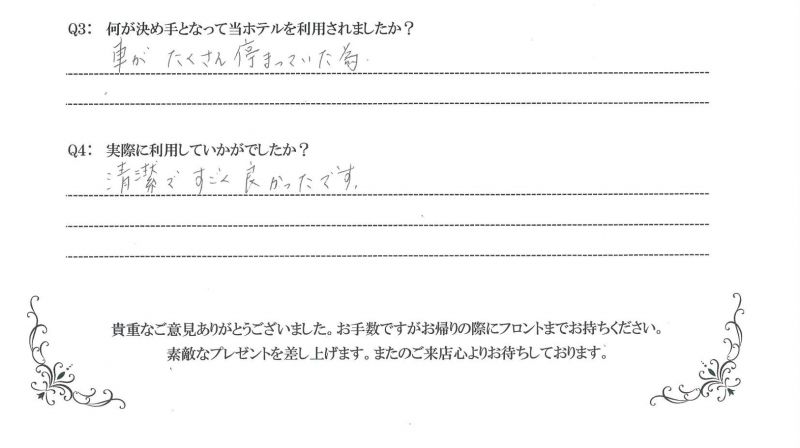 Q3： 何が決め手となって当ホテルを利用されましたか？
車が たくさん停まっていた為.
Q4： 実際に利用していかがでしたか？
清潔で すごく良かったです。
貴重なご意見ありがとうございました。お手数ですがお帰りの際にフロントまでお持ちください。
素敵なプレゼントを差し上げます。またのご来店心よりお待ちしております。